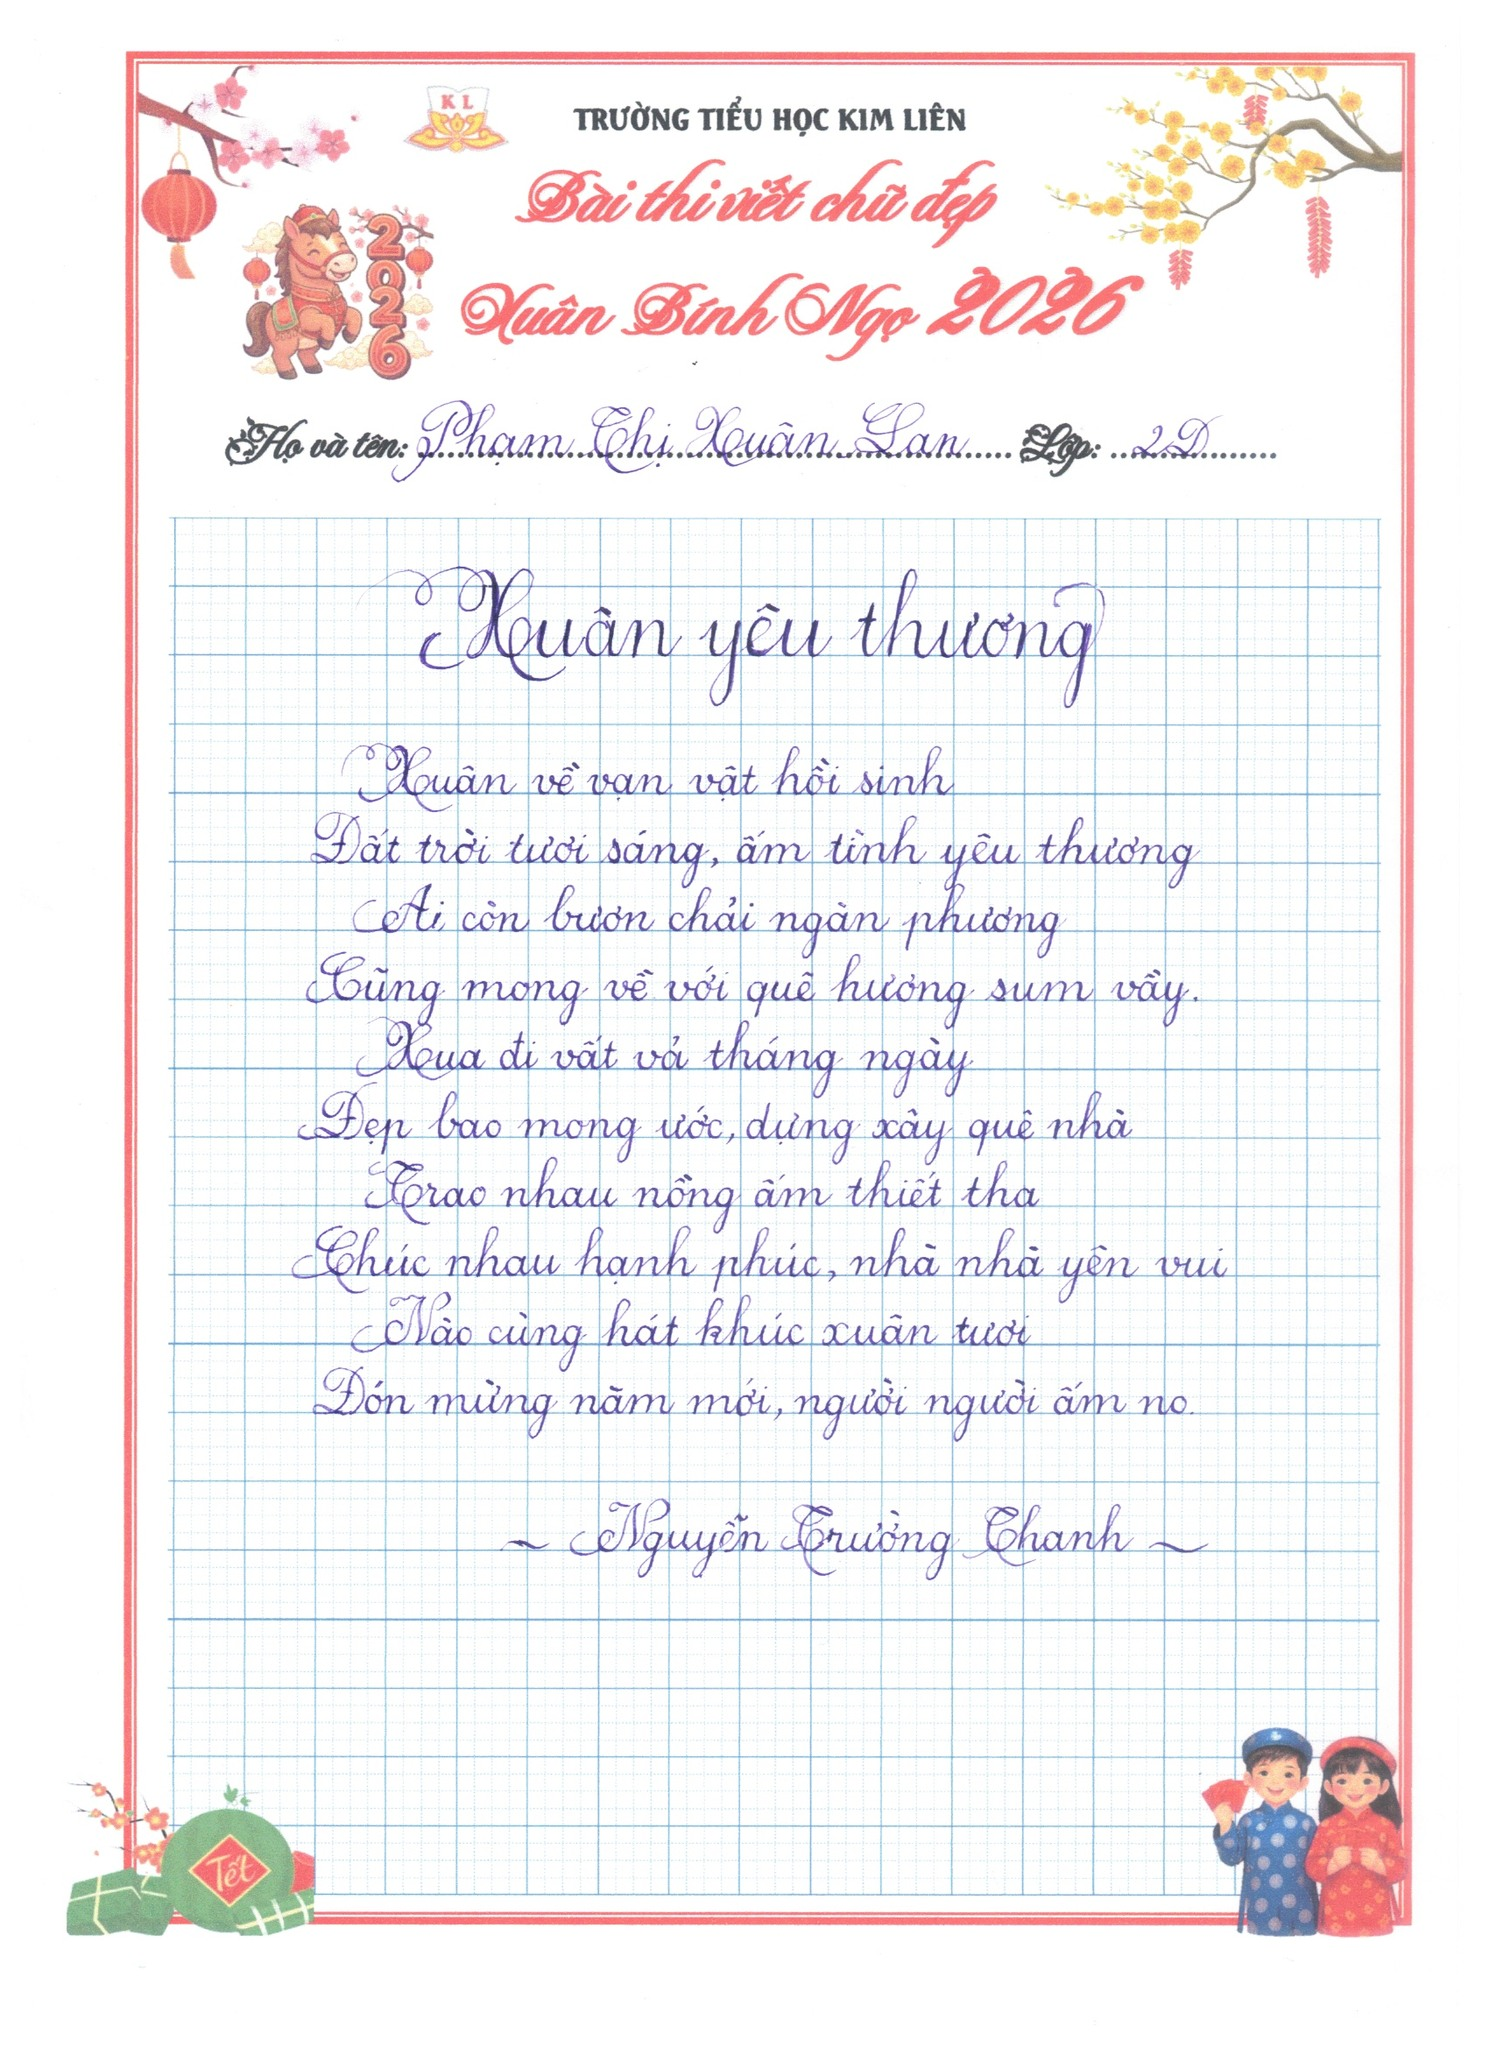 K L
TRƯỜNG TIỂU HỌC KIM LIÊN
Bài thi viết chữ đẹp
2026
Xuân Bính Ngọ 2026
Họ và tên: Phạm Thị Xuân Lan Lớp: 2D
Xuân yêu thương
Xuân về vạn vật hồi sinh
Đất trời tươi sáng, ấm tình yêu thương
Ai còn bươn chải ngàn phương
Cũng mong về với quê hương sum vầy.
Xua đi vất vả tháng ngày
Đẹp bao mong ước, dựng xây quê nhà
Trao nhau nồng ấm thiết tha
Chúc nhau hạnh phúc, nhà nhà yên vui
Nào cùng hát khúc xuân tươi
Đón mừng năm mới, người người ấm no.
~ Nguyễn Trưởng Thanh ~
Tết